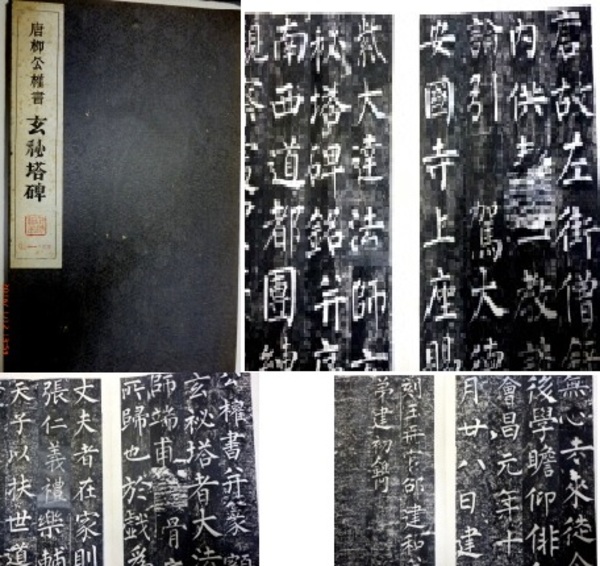 唐柳公權書
玄祕塔碑
唐故左街僧錄
內供奉三教談
論引 駕大德
安國寺上座賜
紫大達法師玄
秘塔碑銘并序
南西道都團練
觀察處
公權書并篆額
玄秘塔者大法
師端甫骨
所歸也於戲為
丈夫者在家則
張仁義禮樂輔
天子以扶世道
無心去來徒令
後學瞻仰俳徊
會昌元年十
月廿八日建
刻玉冊官邵建和并
弟建初鐫